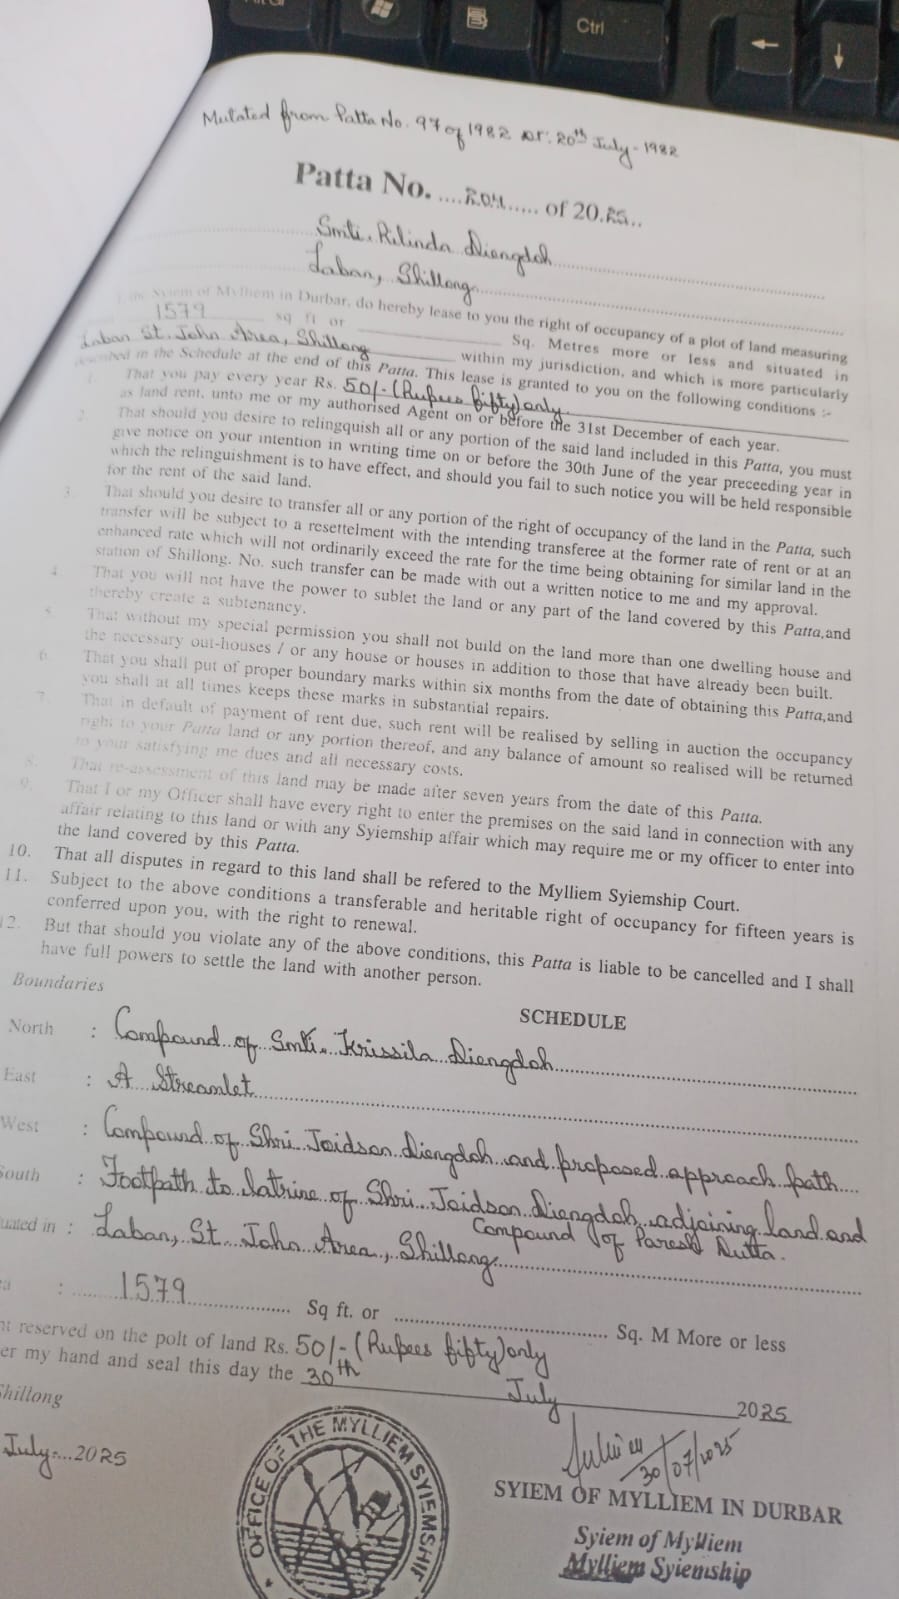 Ctrl
Mutated from Patta No. 97 of 1982 Dt: 20th July - 1982
Patta No. ....204..... of 2025..
Smti. Rilinda Diengdoh
Laban, Shillong
Syiem of Mylliem in Durbar, do hereby lease to you the right of occupancy of a plot of land measuring
1579 sq ft or Sq. Metres more or less and situated in
Laban St. John Area, Shillong within my jurisdiction, and which is more particularly
described in the Schedule at the end of this Patta. This lease is granted to you on the following conditions :-
1. That you pay every year Rs. 50/- (Rupees fifty) only
as land rent, unto me or my authorised Agent on or before the 31st December of each year.
2. That should you desire to relingquish all or any portion of the said land included in this Patta, you must
give notice on your intention in writing time on or before the 30th June of the year preceeding year in
which the relinguishment is to have effect, and should you fail to such notice you will be held responsible
for the rent of the said land.
3. That should you desire to transfer all or any portion of the right of occupancy of the land in the Patta, such
transfer will be subject to a resettelment with the intending transferee at the former rate of rent or at an
enhanced rate which will not ordinarily exceed the rate for the time being obtaining for similar land in the
station of Shillong. No. such transfer can be made with out a written notice to me and my approval.
4. That you will not have the power to sublet the land or any part of the land covered by this Patta,and
thereby create a subtenancy.
5. That without my special permission you shall not build on the land more than one dwelling house and
the necessary out-houses / or any house or houses in addition to those that have already been built.
6. That you shall put of proper boundary marks within six months from the date of obtaining this Patta,and
you shall at all times keeps these marks in substantial repairs.
7. That in default of payment of rent due, such rent will be realised by selling in auction the occupancy
right to your Patta land or any portion thereof, and any balance of amount so realised will be returned
to your satisfying me dues and all necessary costs.
8. That re-assessment of this land may be made after seven years from the date of this Patta.
9. That I or my Officer shall have every right to enter the premises on the said land in connection with any
affair relating to this land or with any Syiemship affair which may require me or my officer to enter into
the land covered by this Patta.
10. That all disputes in regard to this land shall be refered to the Mylliem Syiemship Court.
11. Subject to the above conditions a transferable and heritable right of occupancy for fifteen years is
conferred upon you, with the right to renewal.
12. But that should you violate any of the above conditions, this Patta is liable to be cancelled and I shall
have full powers to settle the land with another person.
SCHEDULE
Boundaries
North : Compound of Smti. Krissila Diengdoh
East : A Streamlet
West : Compound of Shri Joidson Diengdoh and proposed approach path
South : Footpath to latrine of Shri. Joidson Diengdoh adjoining land and
Compound of Paresh Dutta.
uated in : Laban, St. John Area, Shillong
: 1579 Sq ft. or Sq. M More or less
nt reserved on the polt of land Rs. 50/- (Rupees fifty) only
er my hand and seal this day the 30th July 2025
Shillong
July 2025
30/07/2025
SYIEM OF MYLLIEM IN DURBAR
Syiem of Mylliem
Mylliem Syiemship
OFFICE OF THE MYLLIEM SYIEMSHIP